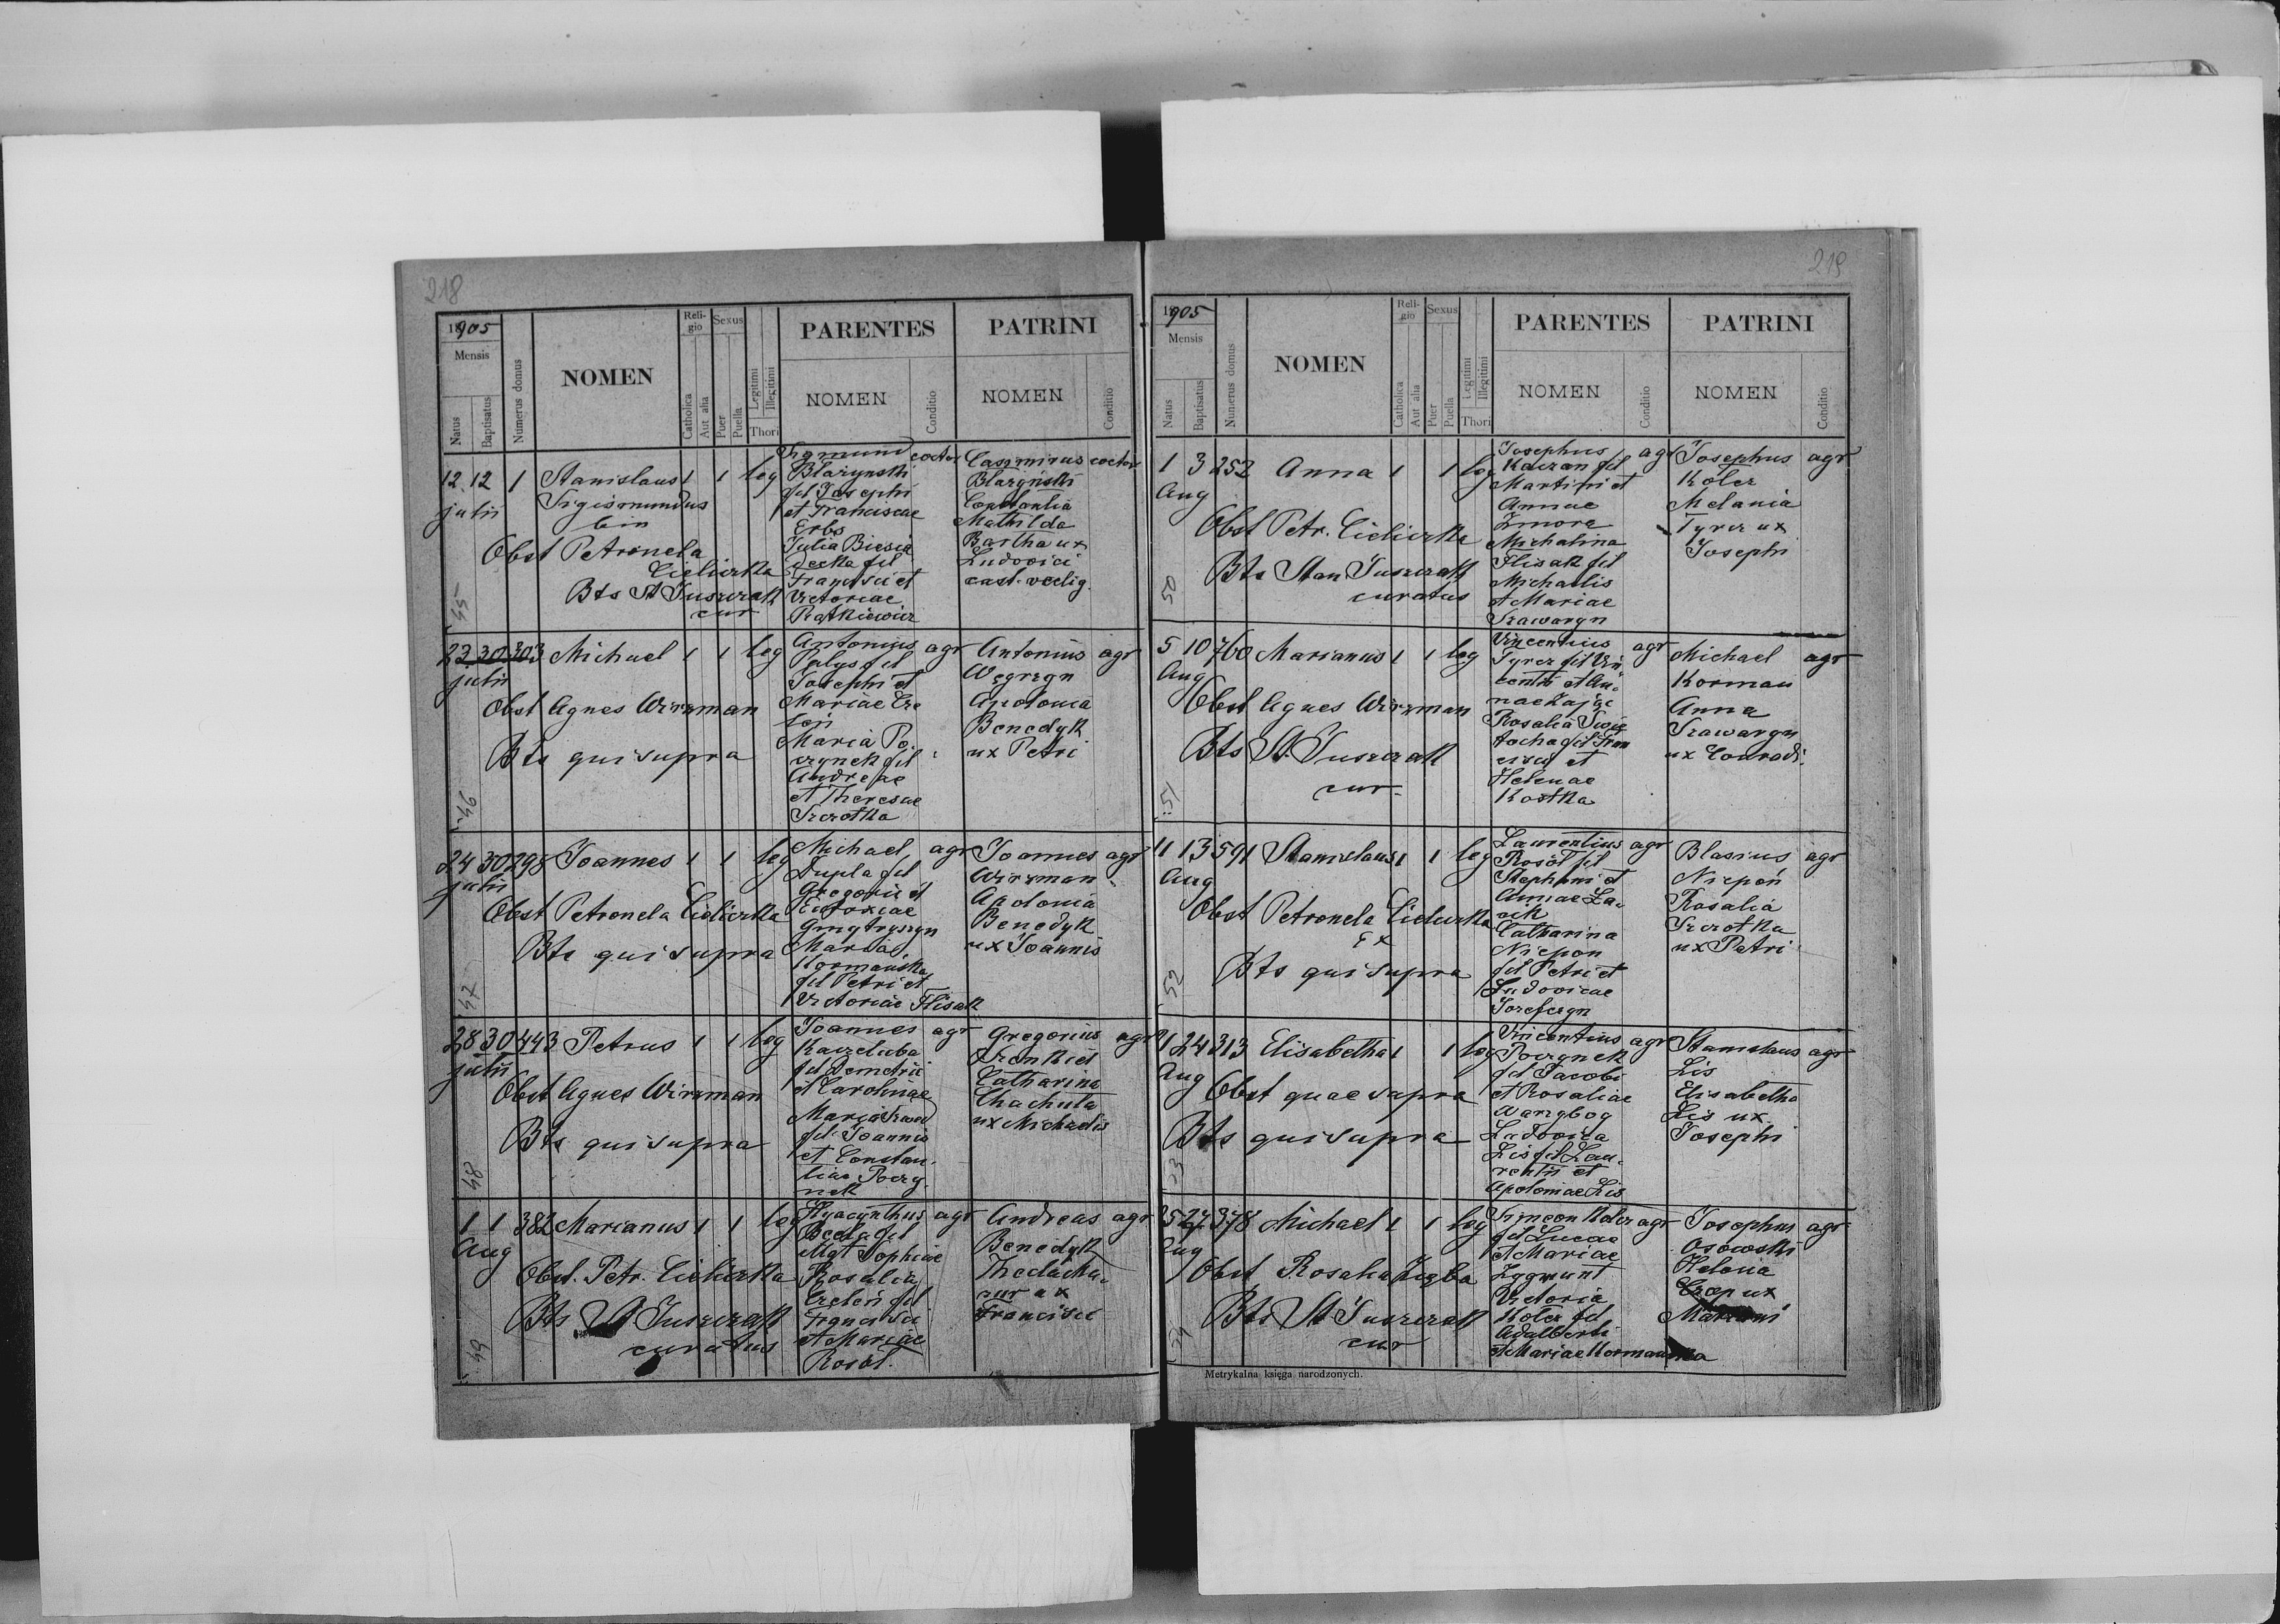 218
1905
Mensis
Natus
Baptisatus
Numerus domus
NOMEN
Religio
Catholica
Aut alia
Sexus
Puer
Puella
Legitimi
Illegitimi
Thori
PARENTES
NOMEN
Conditio
PATRINI
NOMEN
Conditio
12 12 1 Stanislaus 1 1 leg
julii
Sigismundus
bin
Obst Petronela
Cieliczka
Bts St Juszczak
cur
45
Sigmund coctor
Błażynski
fil Josephi
et Franciscae
Erbs
Julia Biesia
decka fil
Francisci et
Victoriae
Ratkiewicz
Casimirus coctor
Błażyński
Constantia
Mathilda
Bartha ux
Ludovici
cust. vectig
23 30 303 Michael 1 1 leg
julii
Obst Agnes Wirzman
Bts qui supra
46
Antonius agr
Palys fil
Josephi et
Mariae Cze
leń
Maria Po
czynek fil
Andreae
et Theresae
Szczotka
Antonius agr
Węgrzyn
Apolonia
Benedyk
ux Petri
24 30 298 Joannes 1 1 leg
julii
Obst Petronela Cieliczka
Bts qui supra
47
Michael agr
Dupla fil
Gregorii et
Eudoxiae
Gmytryszyn
Maria
Kormańska
fil Petri et
Victoriae Flisak
Joannes agr
Wirzman
Apolonia
Benedyk
ux Joannis
28 30 443 Petrus 1 1 leg
julii
Obst Agnes Wirzman
Bts qui supra
48
Joannes agr
Kaczeluba
fil Demetrii
et Carolinae
Maria
fil Joannis
et Constan
tiae Poczy
nek
Gregorius agr
Catharina
Chachuła
ux Michaelis
1 1 382 Marianus 1 1 leg
Aug
Obst. Petr. Cieliczka
Bts St Juszczak
curatus
49
Hyacynthus agr
Becla fil
Mgt Sophiae
Rosalia
Czeleń fil
Francisci
et Mariae
Rosół.
Andreas agr
Benedyk
Thecla
ux
Francisci
219
1905
Mensis
Natus
Baptisatus
Numerus domus
NOMEN
Religio
Catholica
Aut alia
Sexus
Puer
Puella
Legitimi
Illegitimi
Thori
PARENTES
NOMEN
Conditio
PATRINI
NOMEN
Conditio
1 3 252 Anna 1 1 leg
Aug
Obst Petr. Cieliczka
Bts Stan Juszczak
curatus
50
Josephus agr
Kaczan fil
Martini et
Annae
Zmora
Michalina
Flisak fil
Michaelis
et Mariae
Szawaryn
Josephus agr
Koterz
Melania
Tyrcz ux
Josephi
5 10 760 Marianus 1 1 leg
Aug
Obst Agnes Wirzman
Bts St Juszczak
cur.
51
Vincentius agr
Tyrcz fil Vin
centii et An
nae Zając
Rosalia Swię
tocha fil Fran
cisci et
Helenae
Kostka
Michael agr
Korman
Anna
Szawaryn
ux Conradi.
11 13 591 Stanislaus 1 1 leg
Aug
Obst Petronela Cieliczka
Bts qui supra
52
Laurentius agr
Rosół fil
Stephani et
Annae La
cik
Catharina
Niepon
fil Petri et
Ludovicae
Jozefczyn
Blasius agr
Niepoń
Rosalia
Szczotka
ux Petri
21 24 313 Elisabetha 1 1 leg
Aug
Obst quae supra
Bts qui supra
53
Vincentius agr
Poczynek
fil Jacobi
et Rosaliae
Warzybog
Ludovica
Lis fil Lau
rentii et
Apoloniae Lis
Stanislaus agr
Lis
Elisabetha
Lis ux
Josephi
25 27 378 Michael 1 1 leg
Aug
Obst Rosalia Zięba
Bts St Juszczak
cur
54
Simeon Koterz agr
fil Lucae
et Mariae
Zygmunt
Victoria
Koterz fil
Adalberti
et Mariae Kormanska
Josephus agr
Osowski
Helena
Czop ux
Mariani
Metrykalna księga narodzonych.